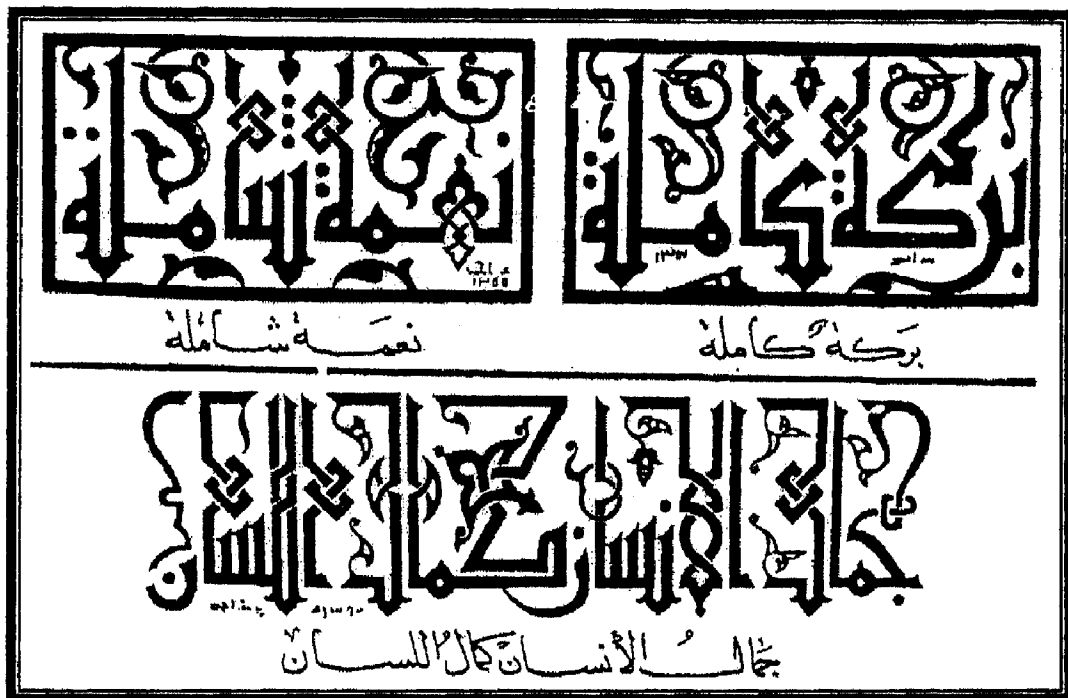 بركة كاملة
نعمة شاملة
بَركة كاملة
نعمَة شاملة
جمال الإنسان كمال اللسان
جمَالُ الأنسان كمالُ اللسان